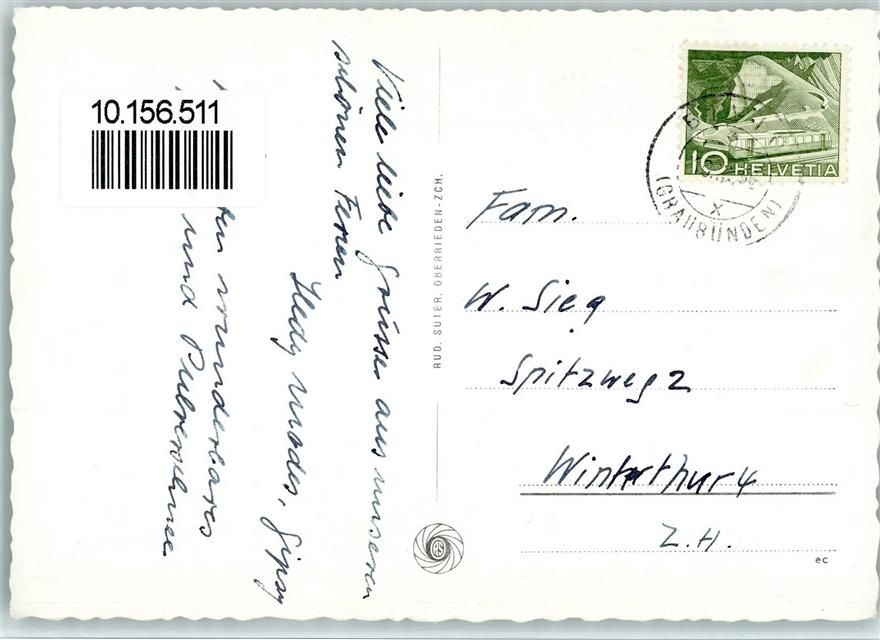 10.156.511
Viele liebe Grüsse aus unseren
schönen Ferien
Hedy
wunderbares
und Pulverschnee
RUD. SUTER, OBERRIEDEN-ZCH.
10 HELVETIA
(GRAUBÜNDEN)
Fam.
W. Sieg
Spitzweg 2
Winterthur 4
Z.H.
ec